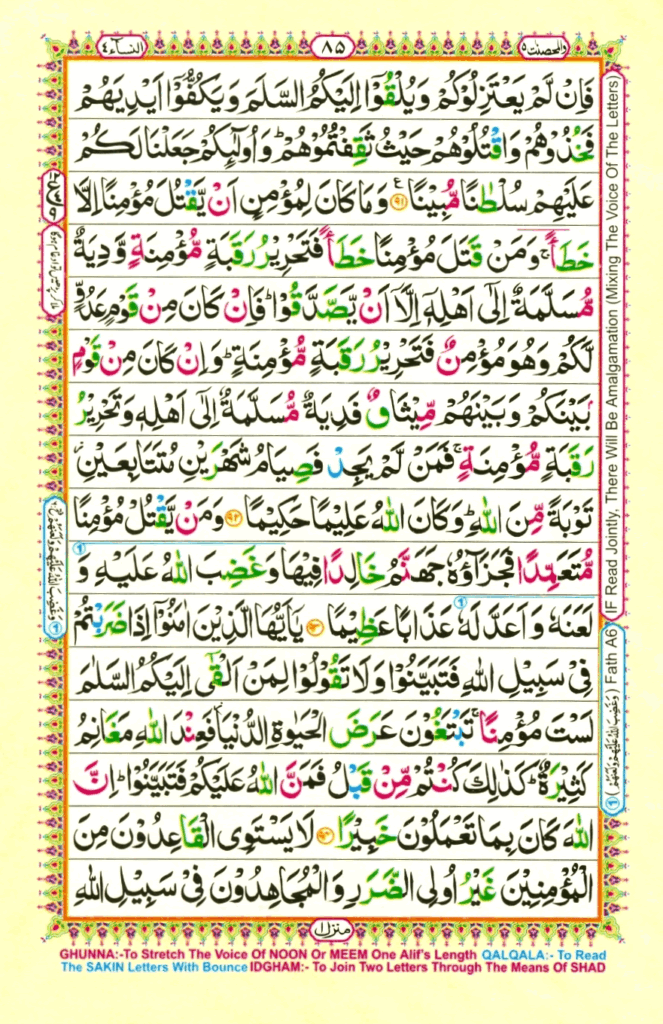 والمحصنت ٥
٨٥
النسآء ٤
فَاِنْ لَّمْ يَعْتَزِلُوْكُمْ وَيُلْقُوْٓا اِلَيْكُمُ السَّلَمَ وَيَكُفُّوْٓا اَيْدِيَهُمْ
فَخُذُوْهُمْ وَاقْتُلُوْهُمْ حَيْثُ ثَقِفْتُمُوْهُمْ ؕ وَاُولٰٓئِكُمْ جَعَلْنَا لَكُمْ
عَلَيْهِمْ سُلْطٰنًا مُّبِيْنًا ﴿٩١﴾ ع وَمَا كَانَ لِمُؤْمِنٍ اَنْ يَّقْتُلَ مُؤْمِنًا اِلَّا
خَطَـًٔا ۚ وَمَنْ قَتَلَ مُؤْمِنًا خَطَـًٔا فَتَحْرِيْرُ رَقَبَةٍ مُّؤْمِنَةٍ وَّدِيَةٌ
مُّسَلَّمَةٌ اِلٰٓى اَهْلِهٖٓ اِلَّآ اَنْ يَّصَّدَّقُوْا ؕ فَاِنْ كَانَ مِنْ قَوْمٍ عَدُوٍّ
لَّكُمْ وَهُوَ مُؤْمِنٌ فَتَحْرِيْرُ رَقَبَةٍ مُّؤْمِنَةٍ ؕ وَاِنْ كَانَ مِنْ قَوْمٍۭ
بَيْنَكُمْ وَبَيْنَهُمْ مِّيْثَاقٌ فَدِيَةٌ مُّسَلَّمَةٌ اِلٰٓى اَهْلِهٖ وَتَحْرِيْرُ
رَقَبَةٍ مُّؤْمِنَةٍ ۚ فَمَنْ لَّمْ يَجِدْ فَصِيَامُ شَهْرَيْنِ مُتَتَابِعَيْنِ
تَوْبَةً مِّنَ اللّٰهِ ؕ وَكَانَ اللّٰهُ عَلِيْمًا حَكِيْمًا ﴿٩٢﴾ وَمَنْ يَّقْتُلْ مُؤْمِنًا
مُّتَعَمِّدًا فَجَزَآؤُهٗ جَهَنَّمُ خَالِدًا فِيْهَا وَغَضِبَ اللّٰهُ عَلَيْهِ وَ
لَعَنَهٗ وَاَعَدَّ لَهٗ عَذَابًا عَظِيْمًا ﴿٩٣﴾ يٰٓاَيُّهَا الَّذِيْنَ اٰمَنُوْٓا اِذَا ضَرَبْتُمْ
فِيْ سَبِيْلِ اللّٰهِ فَتَبَيَّنُوْا وَلَا تَقُوْلُوْا لِمَنْ اَلْقٰٓى اِلَيْكُمُ السَّلٰمَ
لَسْتَ مُؤْمِنًا ۚ تَبْتَغُوْنَ عَرَضَ الْحَيٰوةِ الدُّنْيَا ؗ فَعِنْدَ اللّٰهِ مَغَانِمُ
كَثِيْرَةٌ ؕ كَذٰلِكَ كُنْتُمْ مِّنْ قَبْلُ فَمَنَّ اللّٰهُ عَلَيْكُمْ فَتَبَيَّنُوْا ؕ اِنَّ
اللّٰهَ كَانَ بِمَا تَعْمَلُوْنَ خَبِيْرًا ﴿٩٤﴾ لَا يَسْتَوِى الْقَاعِدُوْنَ مِنَ
الْمُؤْمِنِيْنَ غَيْرُ اُولِى الضَّرَرِ وَالْمُجَاهِدُوْنَ فِيْ سَبِيْلِ اللّٰهِ
منزل ١
(IF Read Jointly, There Will Be Amalgamation (Mixing The Voice Of The Letters)
(وَغَضِبَ اللّٰهُ عَلَيْهِ وَلَعَنَهٗ) Fath A6
GHUNNA:-To Stretch The Voice Of NOON Or MEEM One Alif's Length QALQALA:- To Read
The SAKIN Letters With Bounce IDGHAM:- To Join Two Letters Through The Means Of SHAD